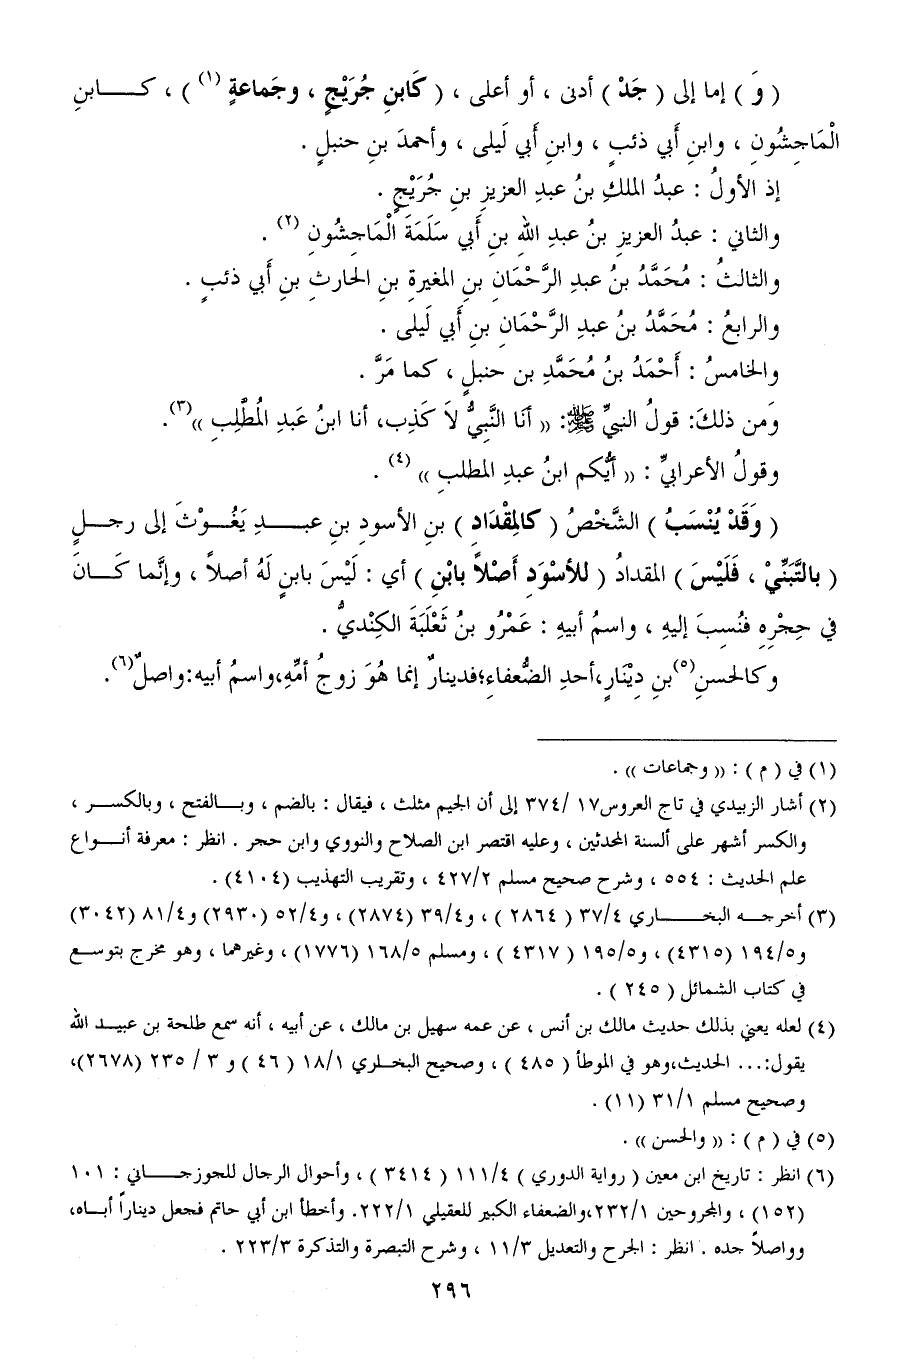 ( وَ ) إما إلى ( جَدْ ) أدنى ، أو أعلى ، ( كَابنِ جُرَيْجٍ ، وجَماعةٍ (١) ) ، كــابنِ
الْمَاجِشُونِ ، وابنِ أَبي ذئبٍ ، وابنِ أَبي لَيلى ، وأحمدَ بنِ حنبلٍ .
إذ الأولُ : عبدُ الملكِ بنُ عبدِ العزيزِ بنِ جُرَيْجٍ .
والثاني : عبدُ العزيزِ بنُ عبدِ اللهِ بنِ أَبي سَلَمَةَ الْمَاجِشُونِ (٢) .
والثالثُ : مُحَمَّدُ بنُ عبدِ الرَّحْمَانِ بنِ المغيرةِ بنِ الحارثِ بنِ أَبي ذئبٍ .
والرابعُ : مُحَمَّدُ بنُ عبدِ الرَّحْمَانِ بنِ أَبي لَيلى .
والخامسُ : أَحْمَدُ بنُ مُحَمَّدِ بن حنبلٍ ، كما مَرَّ .
وَمن ذلكَ: قولُ النبيِّ ﷺ: (( أَنَا النَّبِيُّ لاَ كَذِب، أنا ابنُ عَبدِ الْمُطَّلِبِ ))(٣).
وقولُ الأعرابيِّ : (( أَيُّكم ابنُ عبدِ المطلبِ )) (٤) .
( وَقَدْ يُنْسَبُ ) الشَّخْصُ ( كالمِقْدَادِ ) بنِ الأسودِ بنِ عبــدِ يَغُــوْثَ إلى رجــلٍ
( بالتَّبَنِّيْ ، فَلَيْسَ ) المقدادُ ( للأسْوَدِ أَصْلاً بابْنِ ) أي : لَيْسَ بابنٍ لَهُ أصلاً ، وإنَّما كَــانَ
في حِجْرِهِ فنُسِبَ إليهِ ، واسمُ أبيهِ : عَمْرُو بنُ ثَعْلَبَةَ الكِنْديُّ .
وكالحسنِ(٥)بنِ دِيْنَارٍ،أحدِ الضُّعفاءِ؛فدينارٌ إنما هُوَ زوجُ أمِّهِ،واسمُ أبيه:واصلٌ(٦).
(١) في ( م ) : (( وجماعات )) .
(٢) أشار الزبيدي في تاج العروس١٧ /٣٧٤ إلى أن الجيم مثلث ، فيقال : بالضم ، وبــالفتح ، وبالكسر ،
والكسر أشهر على ألسنة المحدثين ، وعليه اقتصر ابن الصلاح والنووي وابن حجر . انظر : معرفة أنــواع
علم الحديث : ٥٥٤ ، وشرح صحيح مسلم ٤٢٧/٢ ، وتقريب التهذيب (٤١٠٤) .
(٣) أخرجــه البخــاري ٣٧/٤ ( ٢٨٦٤ ) ، و٣٩/٤ (٢٨٧٤) ، و٥٢/٤ (٢٩٣٠) و٨١/٤ (٣٠٤٢)
و١٩٤/٥ (٤٣١٥) ، و١٩٥/٥ ( ٤٣١٧ ) ، ومسلم ١٦٨/٥ (١٧٧٦) ، وغيرهما ، وهو مخرج بتوسـع
في كتاب الشمائل ( ٢٤٥ ) .
(٤) لعله يعني بذلك حديث مالك بن أنس ، عن عمه سهيل بن مالك ، عن أبيه ، أنه سمع طلحة بن عبيـد الله
يقول:... الحديث،وهو في الموطأ ( ٤٨٥ ) ، وصحيح البخاري ١٨/١ ( ٤٦ ) و ٣ / ٢٣٥ (٢٦٧٨)،
وصحيح مسلم ٣١/١ (١١) .
(٥) في ( م ) : (( والحسن )) .
(٦) انظر : تاريخ ابن معين ( رواية الدوري ) ١١١/٤ ( ٣٤١٤ ) ، وأحوال الرجال للجوزجــاني : ١٠١
(١٥٢) ، والمجروحين ٢٣٢/١،والضعفاء الكبير للعقيلي ٢٢٢/١. وأخطأ ابن أبي حاتم فجعل ديناراً أبـاه،
وواصلاً جده . انظر : الجرح والتعديل ١١/٣ ، وشرح التبصرة والتذكرة ٢٢٣/٣ .
٢٩٦